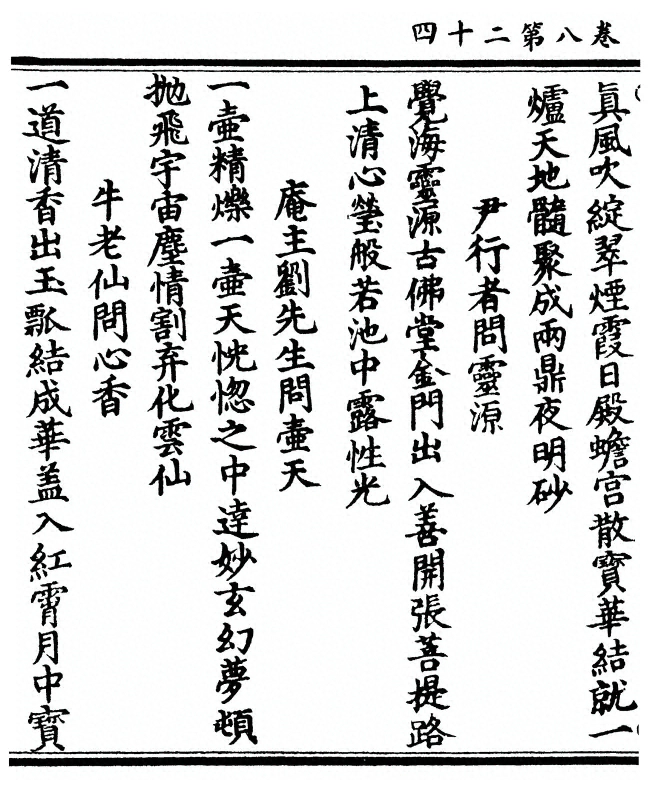 卷八第二十四
眞風吹綻翠煙霞日殿蟾宫散寳華結就一
爐天地髓聚成兩鼎夜明砂
尹行者問靈源
覺海靈源古佛堂金門出入善開張菩提路
上清心瑩般若池中露性光
庵主劉先生問壷天
一壷精爍一壷天恍惚之中達妙玄幻夢頓
抛飛宇宙塵情割弃化雲仙
牛老仙問心香
一道清香出玉瓢結成華盖入紅霄月中寳